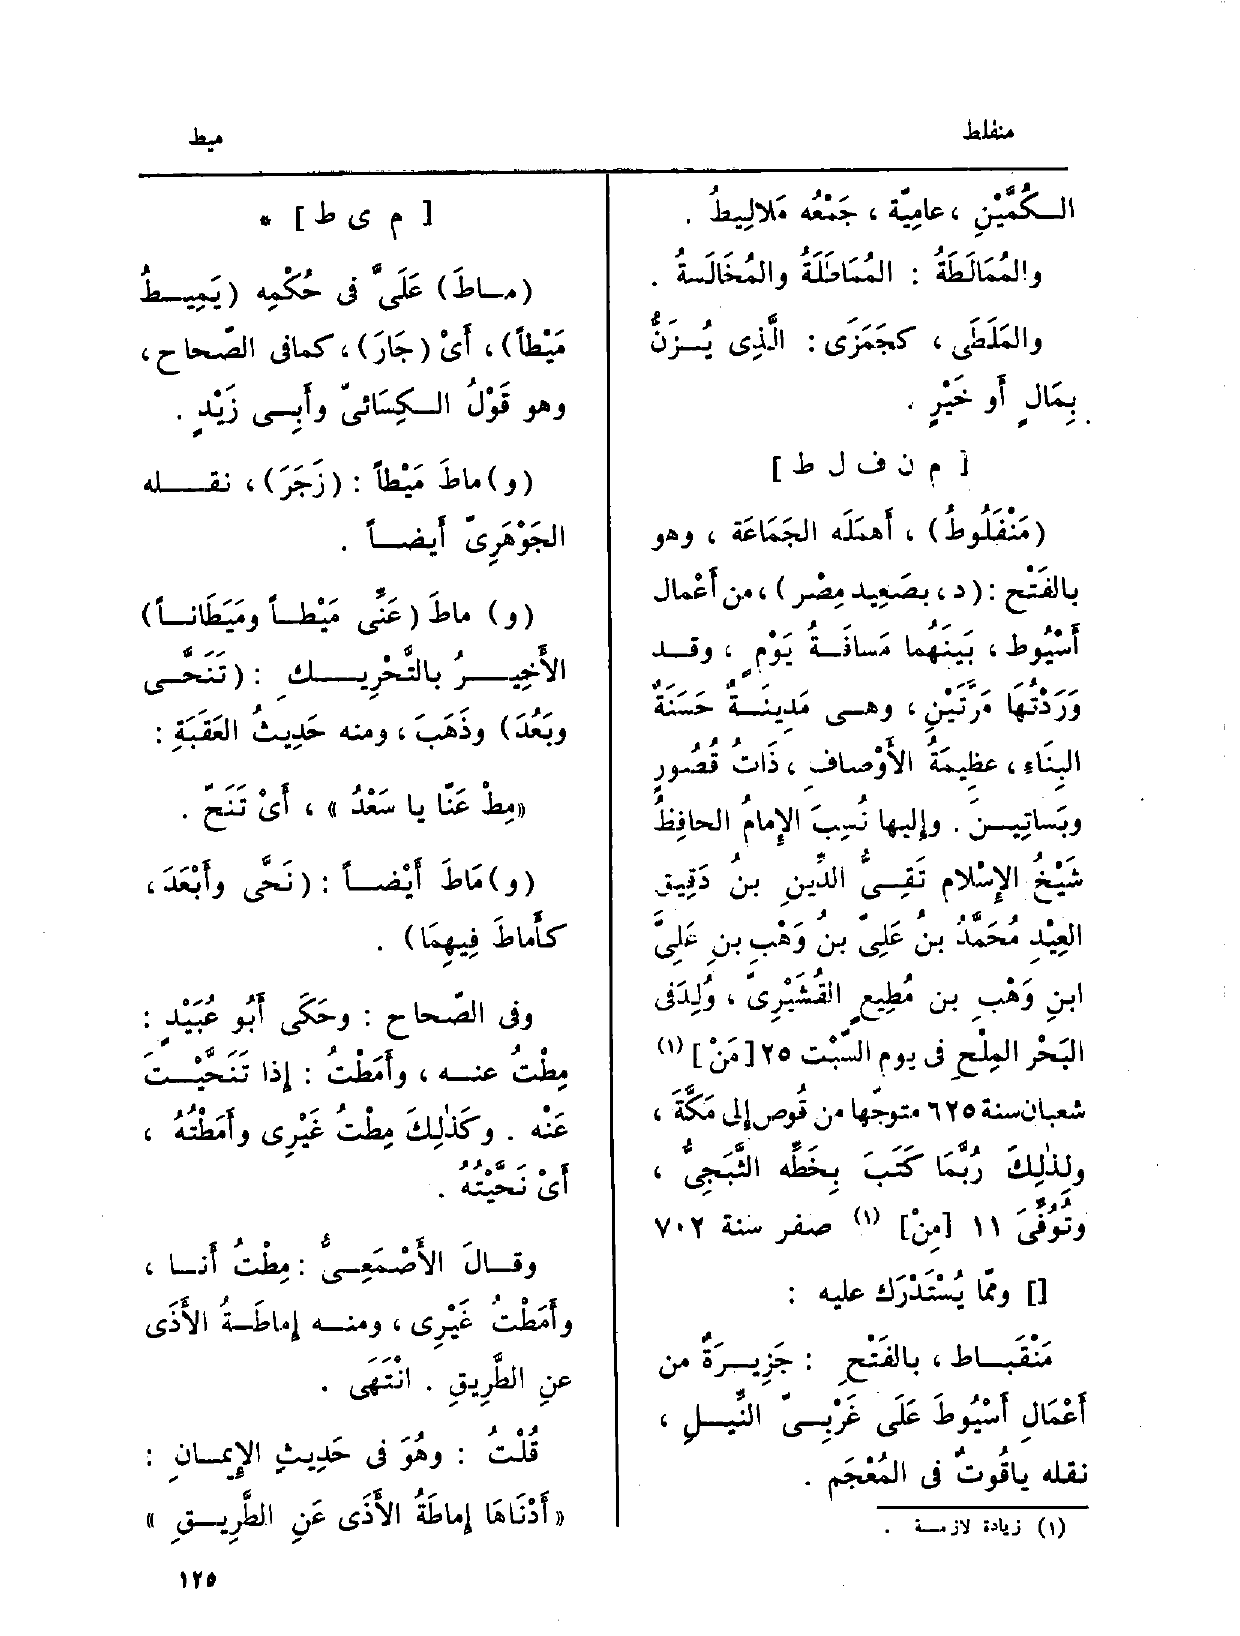 منفلط
ميط
الكُمَّيْنِ ، عامِيّة ، جَمْعُه مَلالِيطُ .
والمُمَالَطَةُ : المُمَاطَلَةُ والمُخَالَسةُ .
والمَلَطَى ، كجَمَزَى : الَّذِى يُزَنُّ
بِمَالٍ أَو خَيْرٍ .
[ م ن ف ل ط ]
(مَنْفَلُوطُ) ، أَهمَلَه الجَمَاعَة ، وهو
بالفَتْح : (د ، بصَعِيد مِصْر) ، من أَعْمال
أَسْيُوط ، بَيْنَهُما مَسافَةُ يَوْمٍ ، وقد
وَرَدْتُهَا مَرَّتَيْنِ ، وهى مَدِينَةٌ حَسَنَةُ
البِنَاءِ ، عظِيمَةُ الأَوْصافِ ، ذَاتُ قُصُورٍ
وبَساتِينَ . وإِليها نُسِبَ الإِمامُ الحافِظُ
شَيْخُ الإِسْلام تَقِىُّ الدِّينِ بنُ دَقِيق
العِيْدِ مُحَمَّدُ بنُ عَلِىّ بنُ وَهْبِ بنِ عَلِىِّ
ابنِ وَهْبِ بن مُطِيعٍ القُشَيْرِىّ ، وُلِدَ فى
البَحْر المِلْحِ فى يوم السَّبْت ٢٥ [مَنْ] (١)
شعبان سنة ٦٢٥ متوجّها من قُوص إلى مَكَّةَ ،
ولِذٰلِكَ رُبَّمَا كَتَبَ بِخَطِّه الثَّبَجِىُّ ،
وتُوُفِّىَ ١١ [مِنْ] (١) صفر سنة ٧٠٢
[] وممّا يُسْتَدْرَك عليه :
مَنْقَباط ، بالفَتْحِ : جَزِيرَةٌ من
أَعْمَالِ أَسْيُوطَ عَلَى غَرْبِىّ النِّيلِ ،
نقله ياقُوتٌ فى المُعْجَمِ .
(١) زيادة لازمة .
[ م ى ط ] *
(ماطَ) عَلَىَّ فى حُكْمِه (يَمِيطُ
مَيْطاً) ، أَىْ (جَارَ) ، كما فى الصّحاح ،
وهو قَوْلُ الكِسَائىّ وأَبِى زَيْدٍ .
(و) ماطَ مَيْطاً : (زَجَرَ) ، نقله
الجَوْهَرِىّ أَيضاً .
(و) ماطَ (عَنِّى مَيْطاً ومَيَطَاناً)
الأَخِيرُ بالتَّحْرِيكِ : (تَنَحَّى
وبَعُدَ) وذَهَبَ ، ومنه حَدِيثُ العَقَبَةِ :
«مِطْ عَنَّا يا سَعْدُ » ، أَىْ تَنَحَّ .
(و) مَاطَ أَيْضاً : (نَحَّى وأَبْعَدَ ،
كأَماطَ فِيهِمَا) .
وفى الصّحاح : وحَكَى أَبُو عُبَيْدٍ :
مِطْتُ عنه ، وأَمَطْتُ : إذا تَنَحَّيْتَ
عَنْه . وكَذٰلِكَ مِطْتُ غَيْرِى وأَمَطْتُهُ ،
أَىْ نَحَّيْتُهُ .
وقالَ الأَصْمَعِىُّ : مِطْتُ أَنا ،
وأَمَطْتُ غَيْرِى ، ومنه إماطَةُ الأَذَى
عنِ الطَّرِيقِ . انْتَهَى .
قُلْتُ : وهُوَ فى حَدِيثِ الإِيمانِ :
«أَدْنَاهَا إماطَةُ الأَذَى عَنِ الطَّرِيقِ »
١٢٥